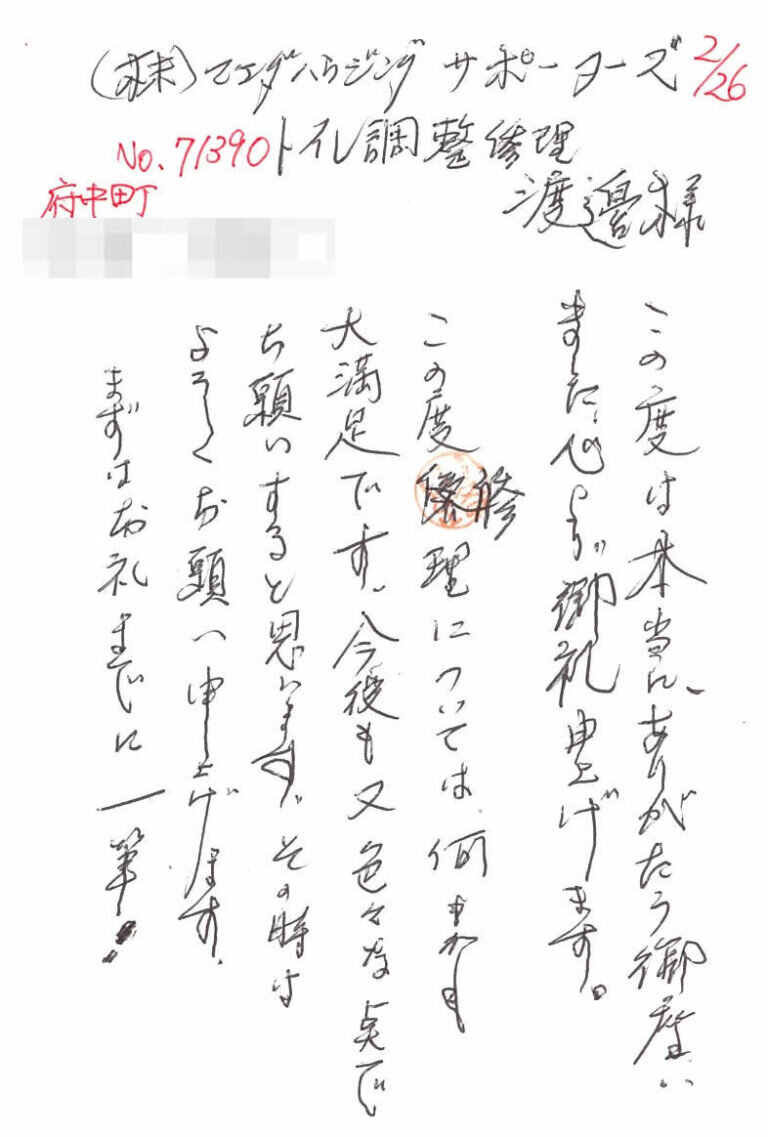 (株)マエダハウジング サポーターズ
2/26
No.71390
トイレ調整修理
府中町
渡邉様
この度は本当に、ありがたう御座い
ました。心より御礼申上げます。
この度修理については何もかも
大満足です。今後も又色々な点で
お願いすると思います。その時は
よろしくお願い申し上げます。
まずはお礼までに一筆!